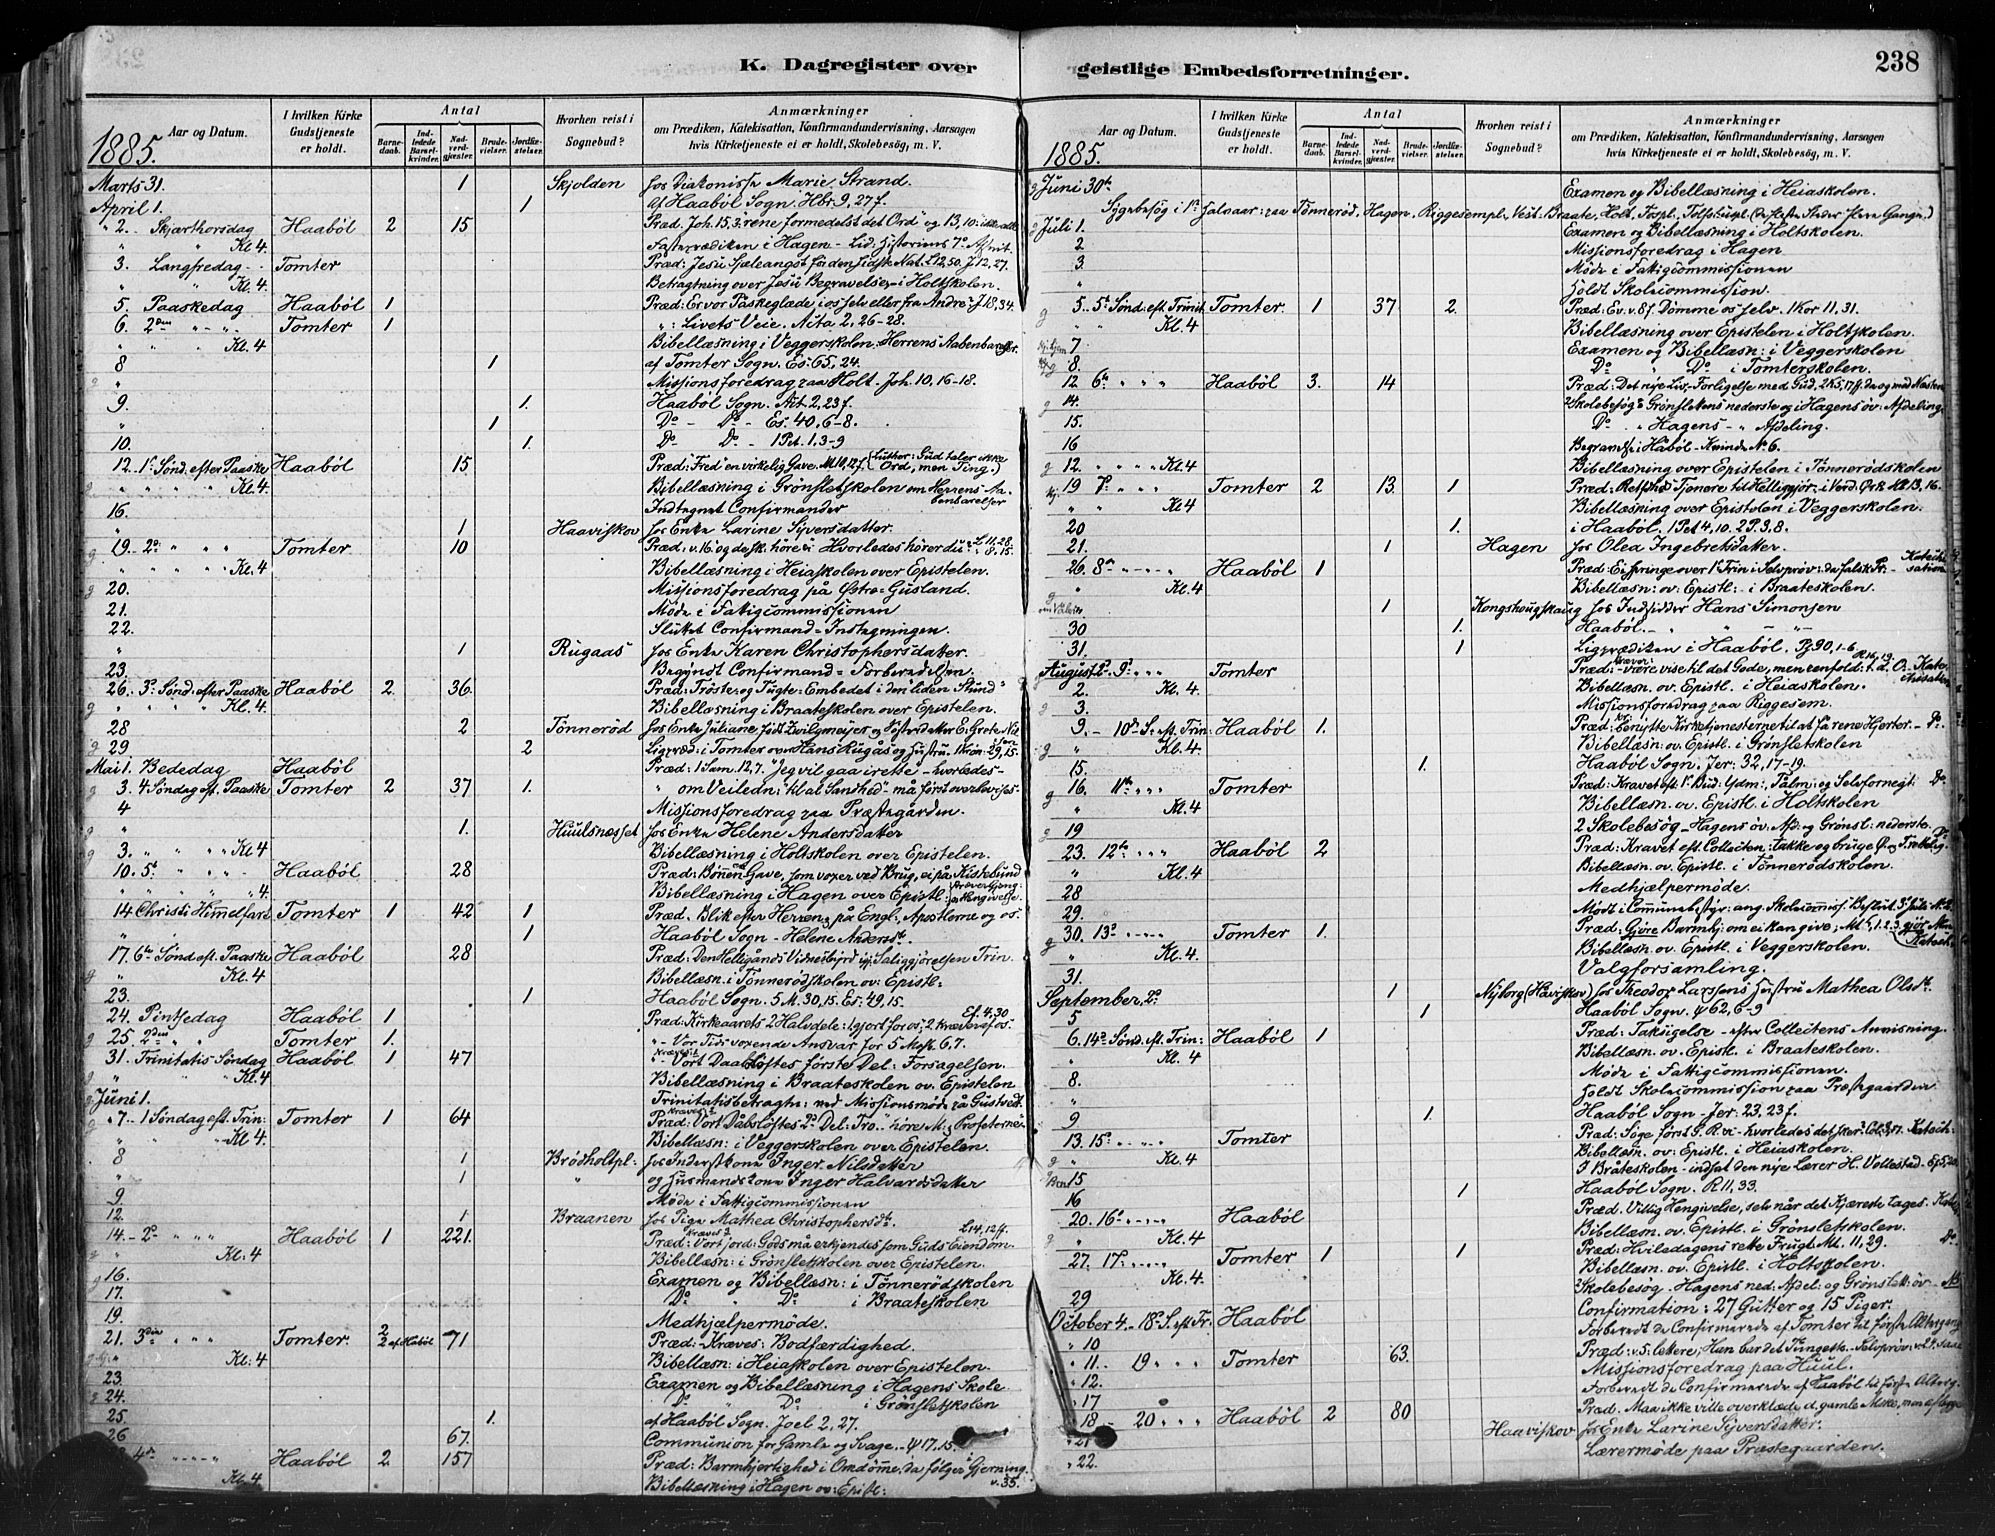 K. Dagregister over
Aar og Datum.
I hvilken Kirke Gudstjeneste er holdt.
Antal
Barnedaab.
Indledede Barselkvinder.
Nadverdgjæster.
Brudevielser.
Jordfæstelser.
Hvorhen reist i Sognebud?
Anmærkninger
om Prædiken, Katekisation, Konfirmandundervisning, Aarsagen
hvis Kirketjeneste ei er holdt, Skolebesøg, m. V.
1885.
Marts 31. 1 Skjolden hos Diakonisse Marie Strand.
April 1. 1 af Haabøl Sogn. Hbr. 9, 27 f.
" 2. Skjærthorsdag Haabøl 2 15 Præd. Joh. 15,3 "rene formedelst det Ord" og 13,10:
" " Kl. 4 Fasteprædiken i Hagen - Lid. historiens 7de Afsnit.
3. Langfredag Tomter Præd: Jesu Sjæleangst før den sidste Nat. L 12,50. J 12,27.
" " Kl. 4. Betragtning over Jesu Begravelse i Holtskolen.
5. Paaskedag Haabøl 1 Præd: Er vor Påskeglæde i os selv eller fra Andre J 18,34.
6. 2den " Tomter 1 " : Livets Veie. Acta 2, 26-28.
" " " Kl. 4 Bibellæsning i Veggerskolen. Herrens Aabenbarelser.
8 1 af Tomter Sogn. Es. 65, 24.
" Missionsforedrag paa Holt. Joh. 10, 16-18.
9. 1. Haabøl Sogn. Act. 2, 23 f.
" 1 Do - Do - Es. 40, 6-8.
10. 1. Do Do - 1 Pet. 1, 3-9
12. 1e Sønd. efter Paaske Haabøl 15 Præd: "Fred" en virkelig Gave. (Luther: Gud taler ikke Ord, men Ting.)
" " " " Kl. 4. Bibellæsning i Grønsletskolen om Herrens Aabenbarelser
16. Indtegnet Confirmander
" 1 Haaviskov hos Enke Larine Syversdatter.
19. 2den " " " Tomter 10 Præd: v. 16 og de sk. høre - Hvorledes hører du: L 11, 28. 8, 15.
" " " " Kl. 4 Bibellæsning i Heiaskolen over Epistelen.
20. Missionsforedrag på Østre Gusland.
21. Møde i Fattigcommissionen
22. Sluttet Confirmand-Indtegningen.
" 1 Rugaas hos Enke Karen Christophersdatter.
23. Begyndt Confirmand-Forberedelsen
26. 3e Sønd. efter Paaske Haabøl 2 36. Præd: Trøste- og Tugte-Embedet i den liden Stund
" " " Kl. 4. Bibellæsning i Braateskolen over Epistelen.
28 2 Tønnerød hos Enke Juliane
29 2 Ligpræd: i Tomter over Hans Rugås og Hustru. 1 Krøn: 29, 15.
Mai 1. Bededag Haabøl Præd: 1 Sam. 12, 7. "Jeg vil gaa irette" - hvorledes-
3. 4. Søndag eft. Paaske Tomter 2 37 1. " om Veiledn: "til al Sandhed" må først overbevises-
4 Missionsforedrag paa Præstegården.
" 1. Huulsnesset hos Enke Helene Andersdatter
3. " " " Kl. 4 Bibellæsning i Holtskolen over Epistelen.
10. 5te " " Haabøl 28 Præd: Bønen en Gave, som voxer ved Brug, ei på Kistebund
" " " " "4. Bibellæsning i Hagen over Epistl:
14 Christi Himmelfart Tomter 1 42 1 Præd: Blik efter Herren, på Engl:, Apostlerne og os.
" 1 Haabøl Sogn - Helene Andersdt.
17. 6te Sønd eft. Paaske Haabøl 28 Præd: Den Helligånds Vidnesbyrd
" Kl. 4 Bibellæsn. i Tønnerødskolen ov: Epistl:
23. 1 Haabøl Sogn. 5 M. 30, 15. Es. 49, 15.
24. Pintsedag Haabøl 1 Præd: Kirkeaarets 2 Halvdele: 1 gjort for os; 2 kræves af os. Ef. 4, 30
25. 2den " " Tomter 1. " - Vor Tids voxende Ansvar før 5 Mos. 6, 7.
31. Trinitatis Søndag Haabøl 1 47 " - Kræves: Vort Daabsløftes første Del: Forsagelsen.
" " Kl. 4 Bibellæsning i Braateskolen ov. Epistelen
Juni 1. Trinitatisbetragtn: ved Missionsmøde på Gustvedt.
" 7. 1 Søndag eft. Trin: Tomter 1 64 Præd: Kræves: Vort Dåbsløftes 2de Del: Tro
" " " Kl. 4. Bibellæsn: i Veggerskolen over Epistelen.
8 1 Brødholtpl: hos Inderstkone Inger Nilsdatter
" 1 " og Husmandskone Inger Halvardsdatter
9. Møde i Fattigcommissionen
12. 1 Braanen hos Pige Mathea Christophersdt.
14. 2den " " " Haabøl 1 221. Præd: Kræves: Vort jord: Gods må erkjendes som Guds Eiendom. L 14, 12 ff.
" Kl. 4 Bibellæsning i Grønsletskolen over Epistelen.
16. Examen og Bibellæsn: i Tønnerødskolen
17. Do " Do i Braateskolen
19. Medhjælpermøde.
21. 3die " " " Tomter. 2 2 af Haabøl 71 Præd: Kræves: Bodfærdighed.
" Kl. 4 Bibellæsn: i Heiaskolen over Epistelen.
23. Examen og Bibellæsning i Hagens Skole
24. Do " Do i Grønsletskolen
25. 1. af Haabøl Sogn. Joel 2, 27.
26 67. Communion for Gamle og Svage. ψ 17, 15.
4de " " " Haabøl 2. 157 Præd: Barmhjertighed i Omdømme, da følger i Gjerning.
Kl. 4 Bibellæsning i Hagen ov: Epistl: v. 35.
geistlige Embedsforretninger.
238
Aar og Datum.
I hvilken Kirke Gudstjeneste er holdt.
Antal
Barnedaab.
Indledede Barselkvinder.
Nadverdgjæster.
Brudevielser.
Jordfæstelser.
Hvorhen reist i Sognebud?
Anmærkninger
om Prædiken, Katekisation, Konfirmandundervisning, Aarsagen
hvis Kirketjeneste ei er holdt, Skolebesøg, m. V.
1885.
Juni 30te Examen og Bibellæsning i Heiaskolen.
Sygebesøg i 1ste Halvaar: paa Tønnerød, Hagen, Riggesempl, Vest-Braate, Holt, (de fleste Steder flere Gange.)
Juli 1. Examen og Bibellæsning i Holtskolen.
2. Missionsforedrag i Hagen
3. Møde i Fattigcommissionen
" Holdt Skolecommission.
5. 5te Sønd: eft. Trinit Tomter. 1 37 2. Præd: Ev. v. 8 f. Dømme os selv. 1 Kor 11, 31.
" " Kl. 4 Bibellæsning over Epistelen i Holtskolen.
7 Examen og Bibellæsn: i Veggerskolen
8. Do " Do i Tomterskolen.
12 6te " " " Haabøl 3. 14 Præd: Det nye Liv, Forligelse med Gud, 2 K 5, 17 ff. da og med Næsten
14. 2 Skolebesøg: Grønsletens nederste og i Hagens øv: Afdeling.
15. Do. " Hagens - " Afdeling.
16 Begravelse i Håbøl - Kvinde No 6.
12. " " " " Kl. 4 Bibellæsning over Epistelen i Tønnerødskolen
19 7de " " " Tomter 2 13. 1 Præd: Retfærd: Tjenere til Helliggjør:
" " Kl. 4 Bibellæsning over Epistelen i Veggerskolen.
20 1. i Haabøl. 1 Pet 4, 10. 2 P. 3, 8.
21. 1 Hagen hos Olea Ingebretsdatter.
26. 8de " " " Haabøl 1 Præd: Ei springe over 1ste Trin i Selvprøv: Katechisation
" Kl. 4 Bibellæsn: ov: Epistl: i Braateskolen.
1 Kongshougskaug hos Indsidder Hans Simonsen
30 1. Haabøl. - " - " -
31. 1 Ligprædiken i Haabøl. Ps 90, 1-6
August 2. 9de " " Tomter Præd: Kræver: være vise til det Gode, men enfold: t. d. O. R 16, 19. Katechisation
2. Kl. 4. Bibellæsn. ov: Epistl. i Heiaskolen.
3. Missionsforedrag paa Riggesem.
9. - 10de S. eft. Trin: Haabøl 1. Præd: benytte Kirketjenesterne til at få rene Hjerter. - Do.
" Kl. 4. Bibellæsn: ov: Epistl. i Grønsletskolen
15. 1. Haabøl Sogn. Jer: 32, 17-19.
16. 11te " " " Tomter Præd: Kravet eft. 1ste Bud: Ydm:, Tålm: og Selvfornegt: Do
" Kl. 4 Bibellæsn. ov: Epistl. i Holtskolen
19 2 Skolebesøg - Hagens øv: Afd: og Grønsl: nederste.
23. 12te " " " Haabøl 2 Præd: Kravet eft Collecten: Takke og bruge Do
" Kl. 4 Bibellæsn: ov: Epistl. i Tønnerødskolen.
28 Medhjælpermøde.
29. Mødt i Communebestyr: ang. Skolecommiss:
30. 13de " " " Tomter 1. Præd: Gjøre Barmhj: om ei kan give; Katech:
" Kl. 4. Bibellæsn: ov: Epistl. i Veggerskolen.
31. Valgforsamling.
September 2de 1 Nyborg (Haaviskov) hos Theodor Larssens Hustru Mathea Olsdt.
5 1 Haabøl Sogn. ψ 62, 6-9
6. 14de Sønd. eft. Trin: Haabøl 1 Præd: Taksigelse - efter Collectens Anvisning.
" Kl. 4 Bibellæsn: ov. Epistl. i Braateskolen.
8. Møde i Fattigcommissionen
" Holdt Skolecommission paa Præstgaarden
9 1 Haabøl Sogn - Jer: 23, 23 f.
13. 15de " " " Tomter Præd: Søge først G. R. vi - hvorledes det sker: Katech:
" Kl. 4 Bibellæsn: ov. Epistl: i Heiaskolen.
15 I Bråteskolen - indsat den nye Lærer H. Vollestad.
16 1 Haabøl Sogn. R 11, 33.
20. 16de " " " Haabøl Præd: Villig Hengivelse, selv når det Kjæreste tages.
" Kl. 4 Bibellæsn. ov. Epistl. i Grønsletskolen.
27. 17de " " Tomter 1 1 Præd: Hviledagens rette Frugt. Mt. 11, 29. Do
Kl. 4. Bibellæsn. ov: Epistl. i Holtskolen.
29 2 Skolebesøg. Hagens ned. Afdel: og Grønslett: øv -
October 4. 18de S. eft Tr. Haabøl Confirmation: 27 Gutter og 15 Piger.
" 10 Forberedt de Confirmerede af Tomter til første Altergang
" 11. 19 " " Tomter 63. Præd:
" 12. Missionsforedrag paa Huul.
" 17 Forberedt de Confirmerede af Haabøl til første Alterg.
" 18 - 20 " " Haabøl 2 80 Præd. Maa ikke ville overklæde d. gamle Mske, men aflægge
" 21 Haaviskov hos Enke Larine Syversdatter.
" 22. Lærermøde paa Præstegaarden.